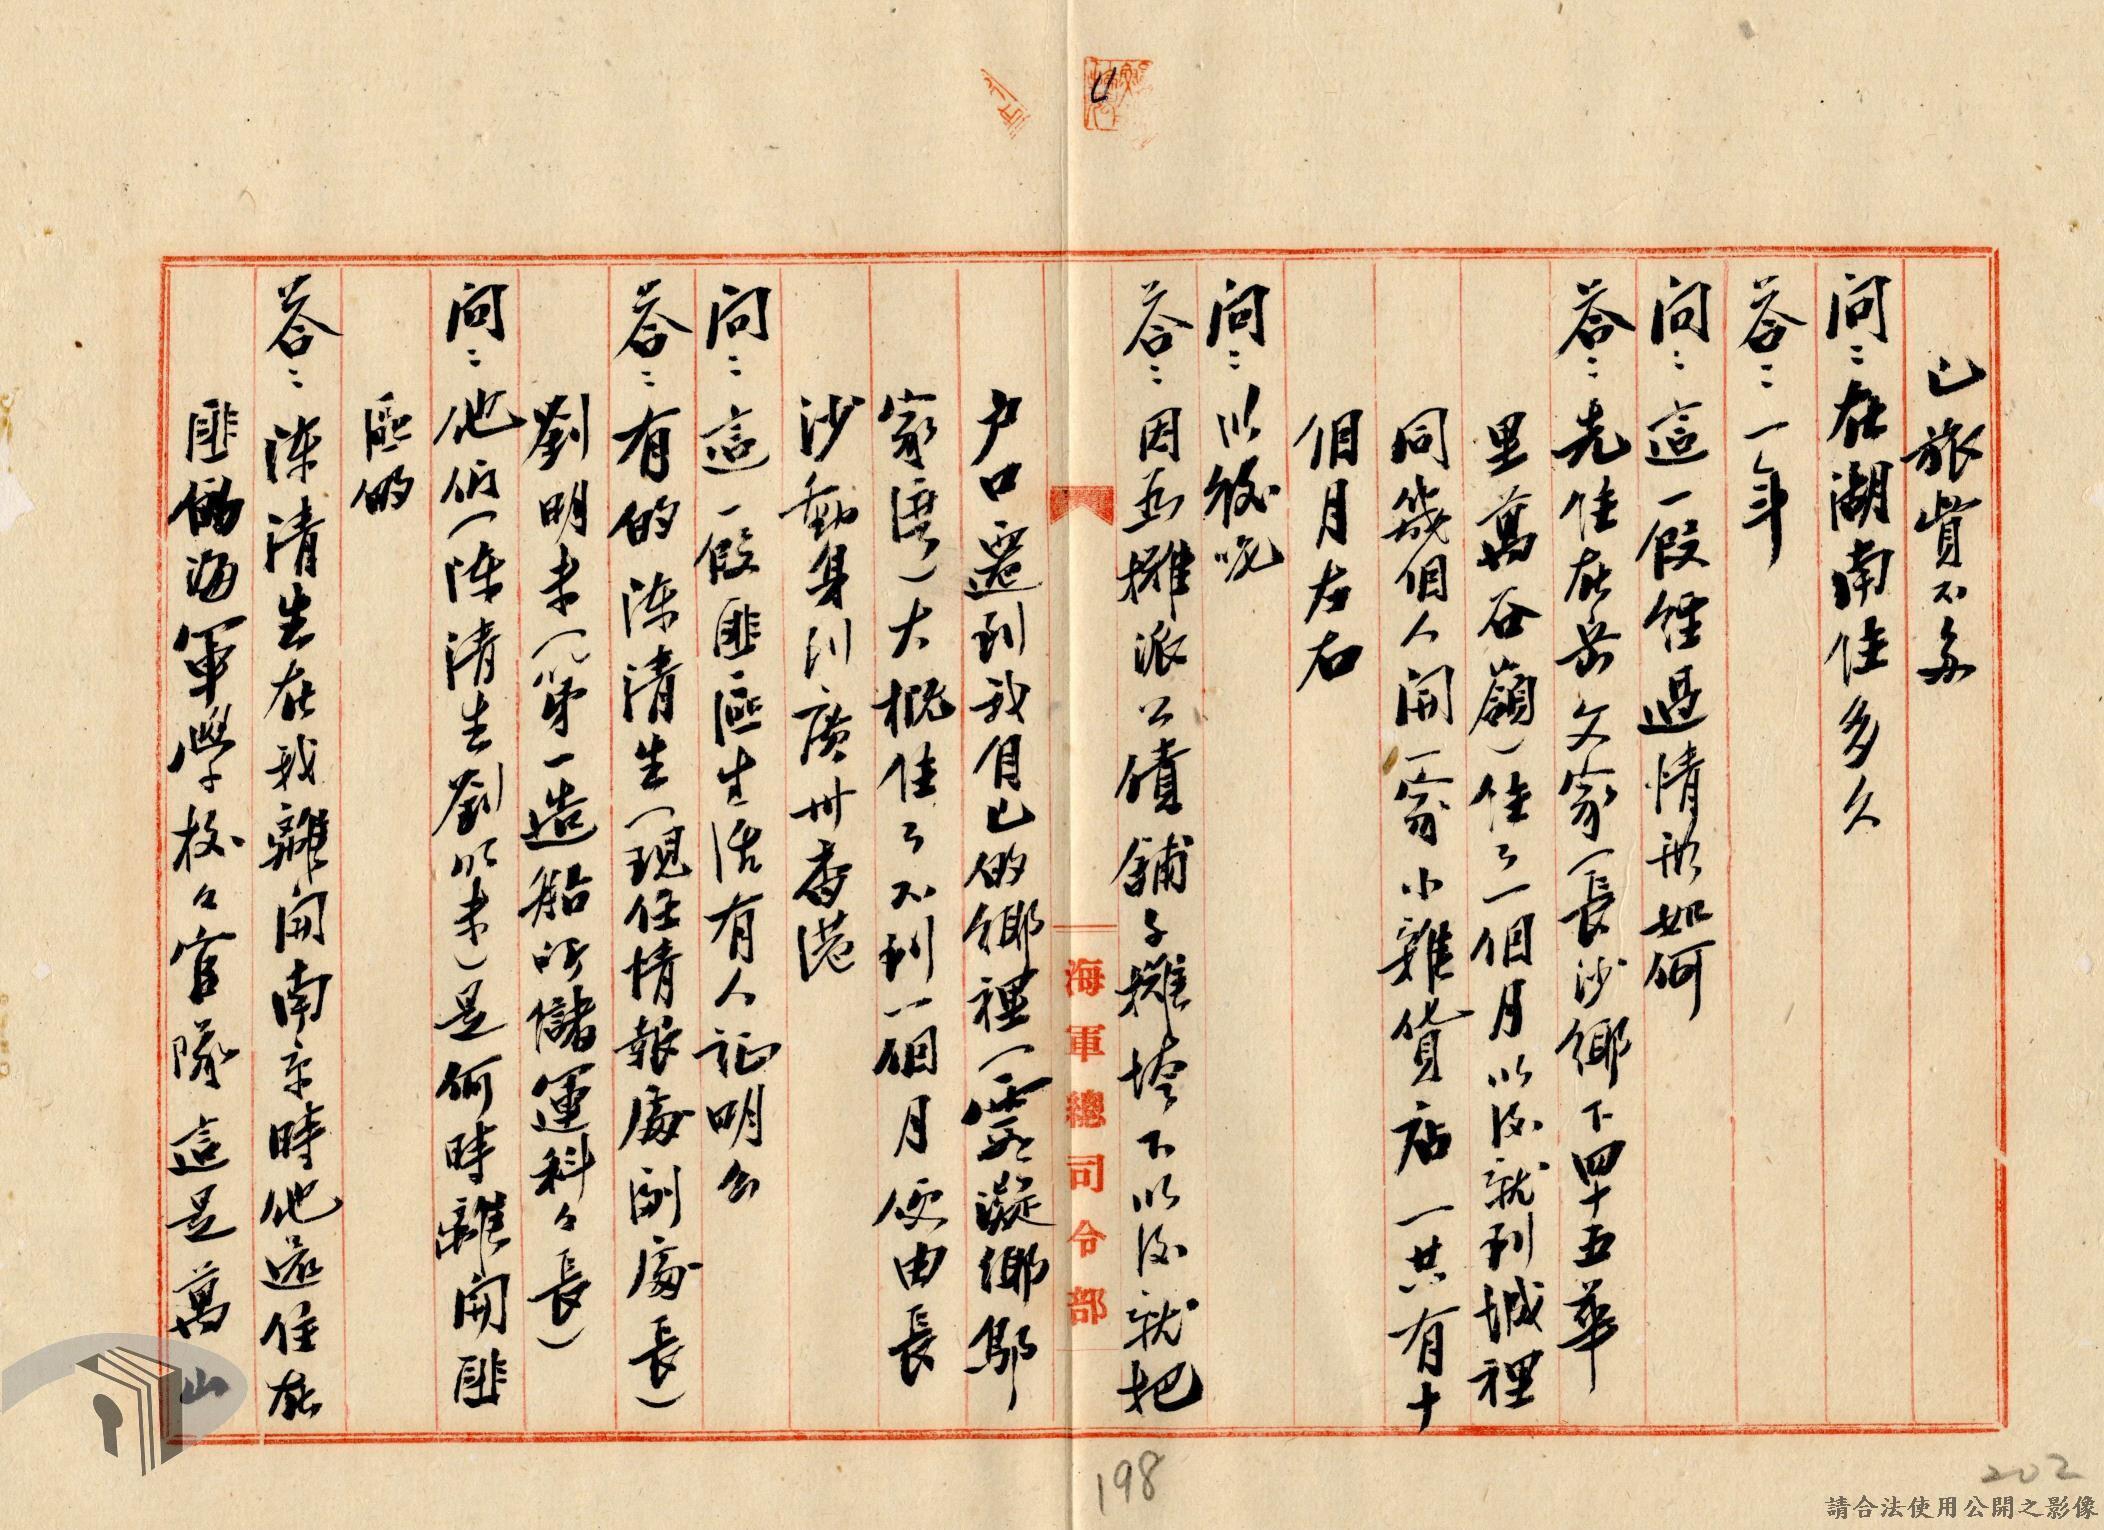 已旅費不多
問：在湖南住多久
答：一年
問：這一段經過情形如何
答：先住在岳父家（長沙鄉下四十五華
里萬石嶺）住了一個月以後就到城裡
同幾個人開一家小雜貨店一共有十
個月左右
問：以後呢
答：因為攤派公債舖子攤垮下以後就把
戶口遷到我自己的鄉裡（雲凝鄉鄔
家灣）大概住了不到一個月便由長
沙動身到廣州香港
問：這一段匪區生活有人証明么
答：有的陳清生（現任情報處副處長）
劉明未（第一造船所儲運科々長）
問：他們（陳清生劉明未）是何時離開匪
區的
答：陳清生在我離開南京時他還住在
匪偽海軍學校々官隊這是萬山
海軍總司令部
198
202
請合法使用公開之影像